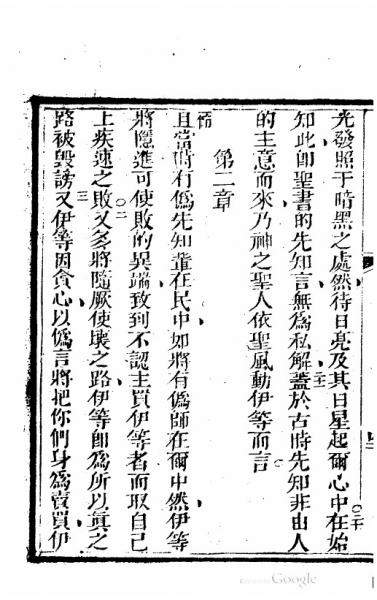 光發照于暗黑之處然待日亮及其日星起爾心中在始
知此卽聖書的先知言無爲私解蓋於古時先知非由人
的主意而來乃神之聖人依聖風動伊等而言
第二章
且當時有僞先知輩在民中如將有僞師在爾中然伊等
將隱進可使敗的異端致到不認主買伊等者而取自己
上疾速之敗又多將隨厥使壞之路伊等卽爲所以眞之
路被毀謗又伊等因貪心以僞言將把你們身爲賣買伊
Google